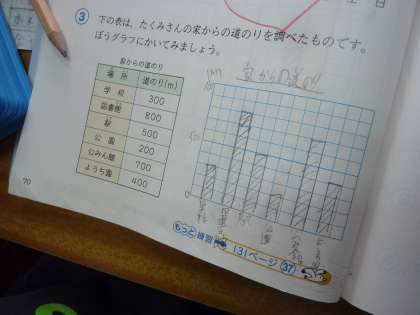 3 下の表は、たくみさんの家からの道のりを調べたものです。
ぼうグラフにかいてみましょう。
家からの道のり
場所 道のり(m)
学校 300
図書館 800
駅 500
公園 200
公みん館 700
ようち園 400
(m)
家からの道のり
0
学校
図書館
公園
公みん館
ようち園
もっと練習 131ページ 37
70